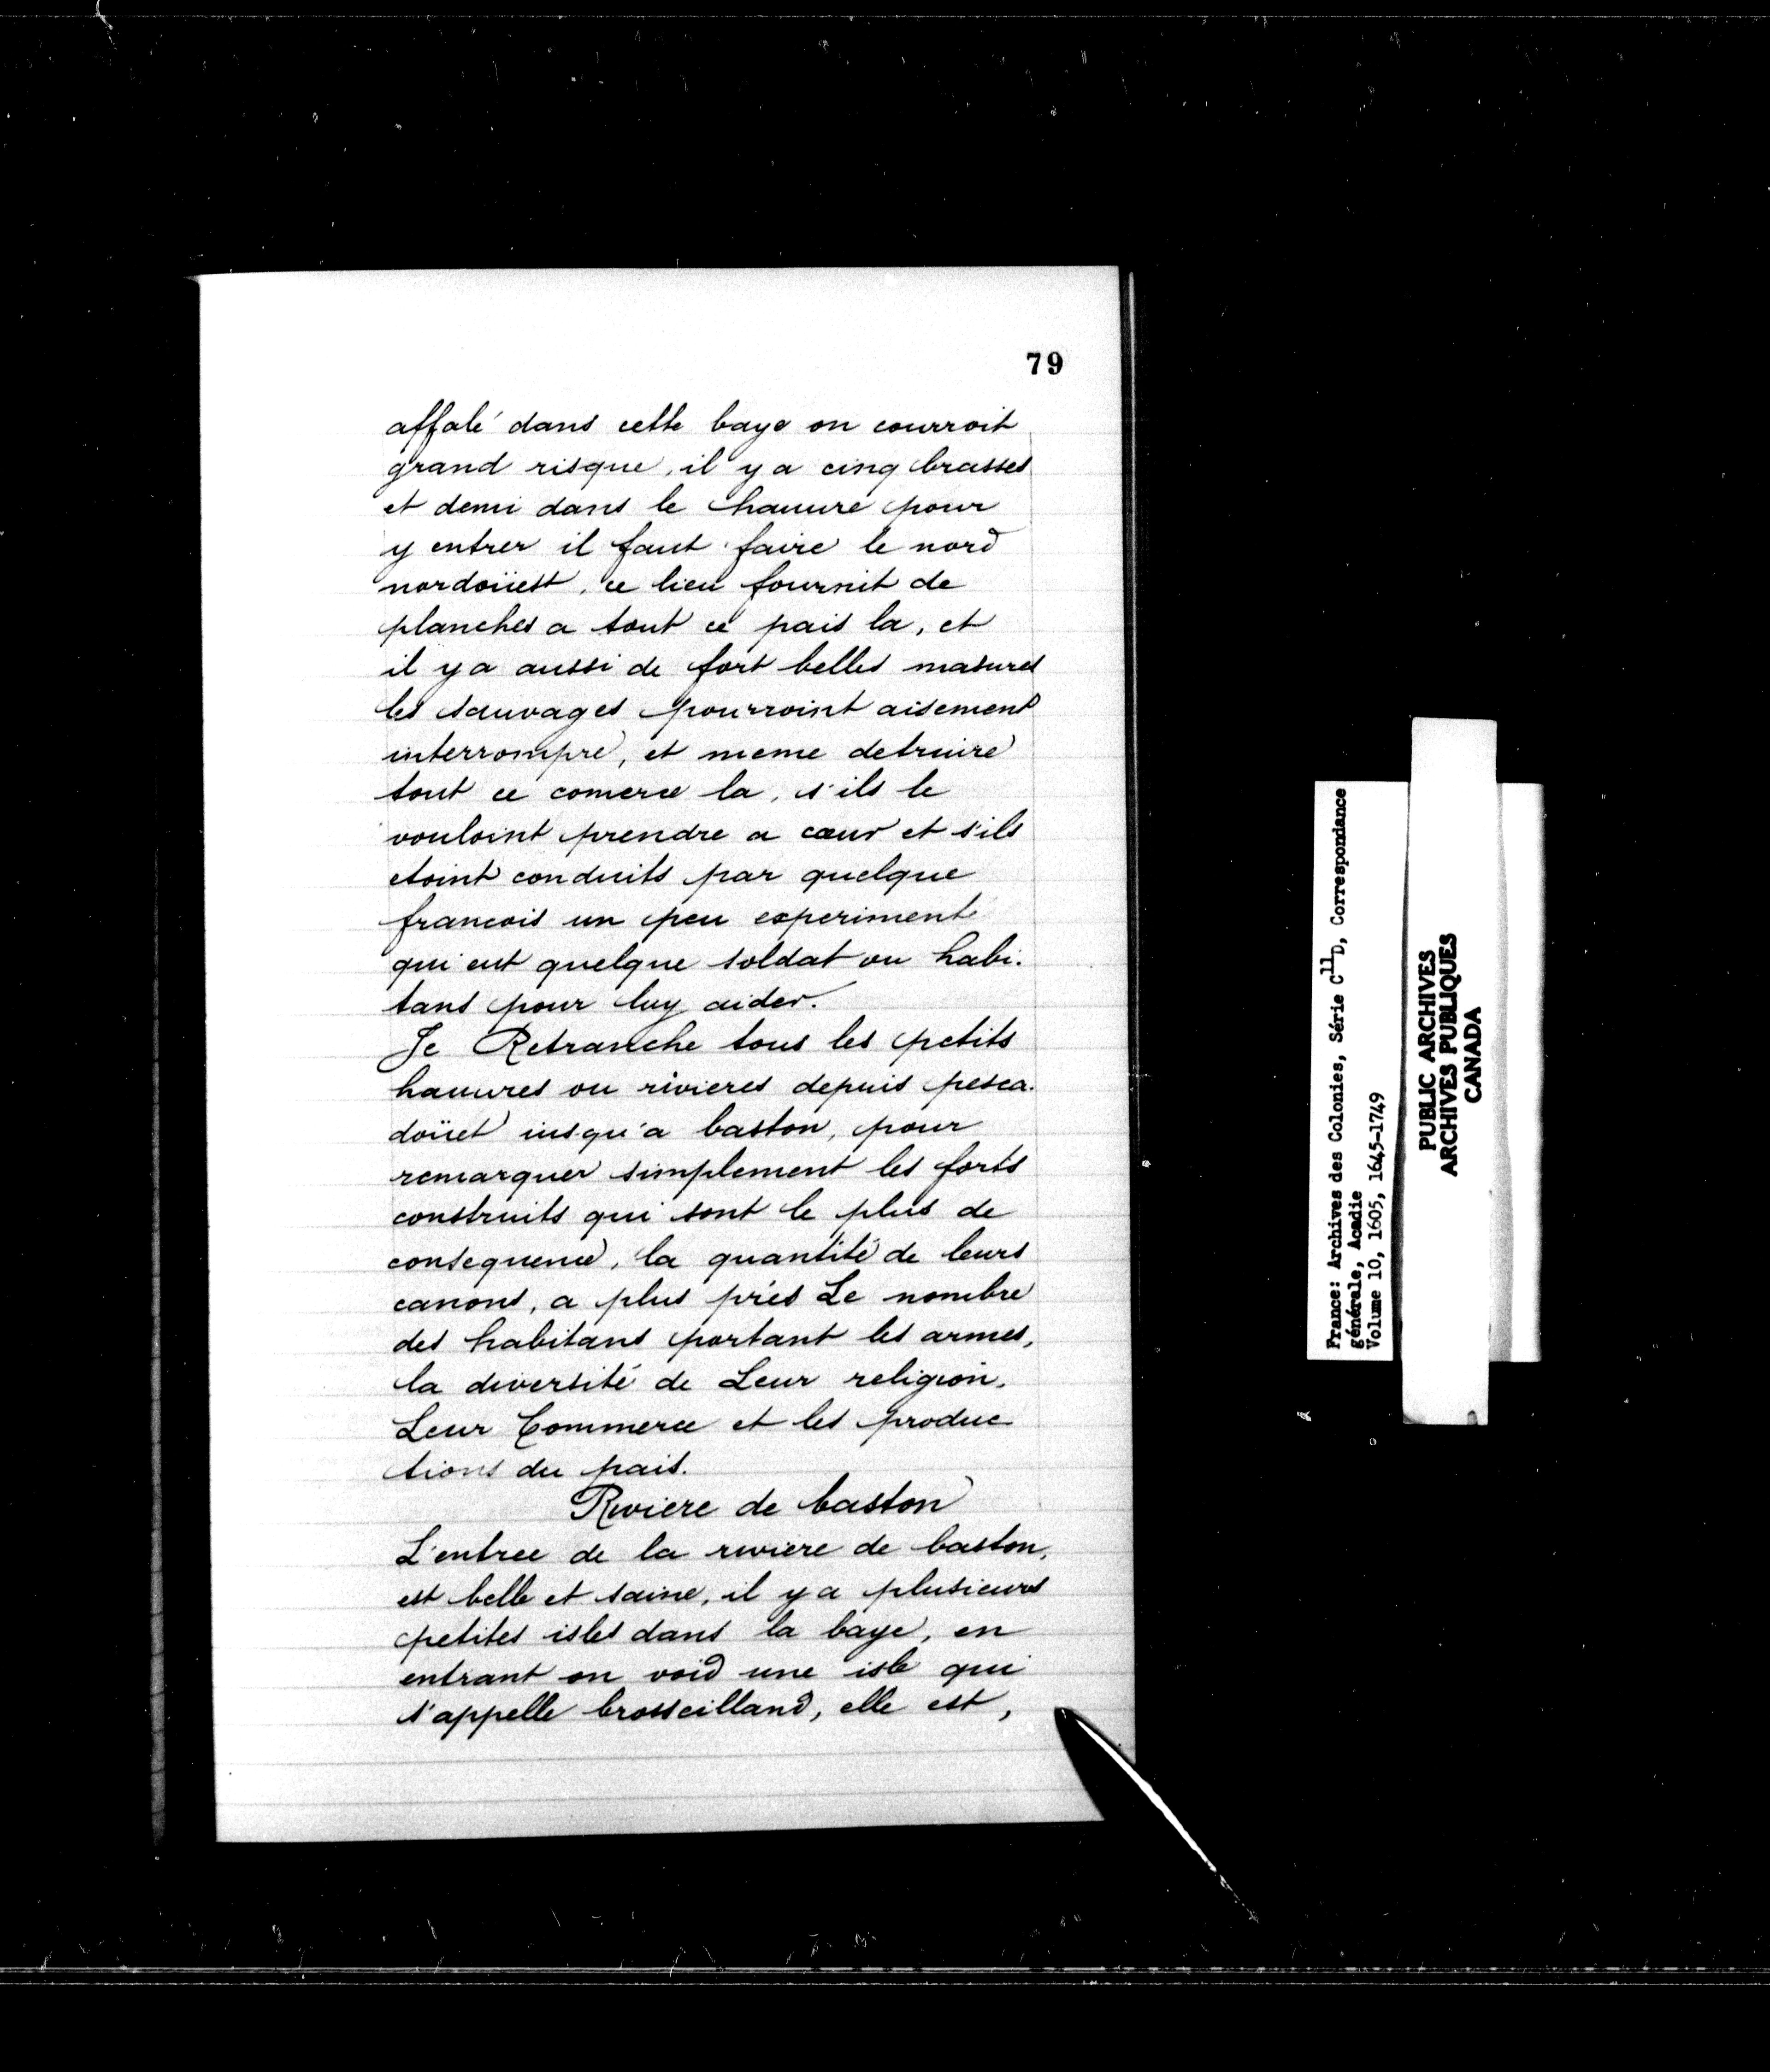 79
affalé dans cette baye on courroit
grand risque, il y a cinq brasses
et demi dans le hauure pour
y entrer il faut faire le nord
nordoüest, ce lieu fournit de
planches a tout ce pais la, et
il y a aussi de fort belles masures
les sauvages pourroint aisement
interrompre, et meme detruire
tout ce comerce la, s'ils le
vouloint prendre a cœur et s'ils
etoint conduits par quelque
francois un peu experimenté
qui eut quelque soldat ou habi-
tans pour luy aider.
Je Retranche tous les petits
hauures ou rivieres depuis pesca-
doüet iusqu'a baston, pour
remarquer simplement les forts
construits qui sont le plus de
consequence, la quantité de leurs
canons, a plus prés Le nombre
des habitans portant les armes,
la diversité de Leur religion,
Leur Commerce et les produc
tions du pais.
Riviere de baston
L'entree de la riviere de baston,
est belle et saine, il y a plusieurs
petites isles dans la baye, en
entrant on void une isle qui
s'appelle brosseilland, elle est,
France: Archives des Colonies, Série C11D, Correspondance
générale, Acadie
Volume 10, 1605, 1645-1749
PUBLIC ARCHIVES
ARCHIVES PUBLIQUES
CANADA